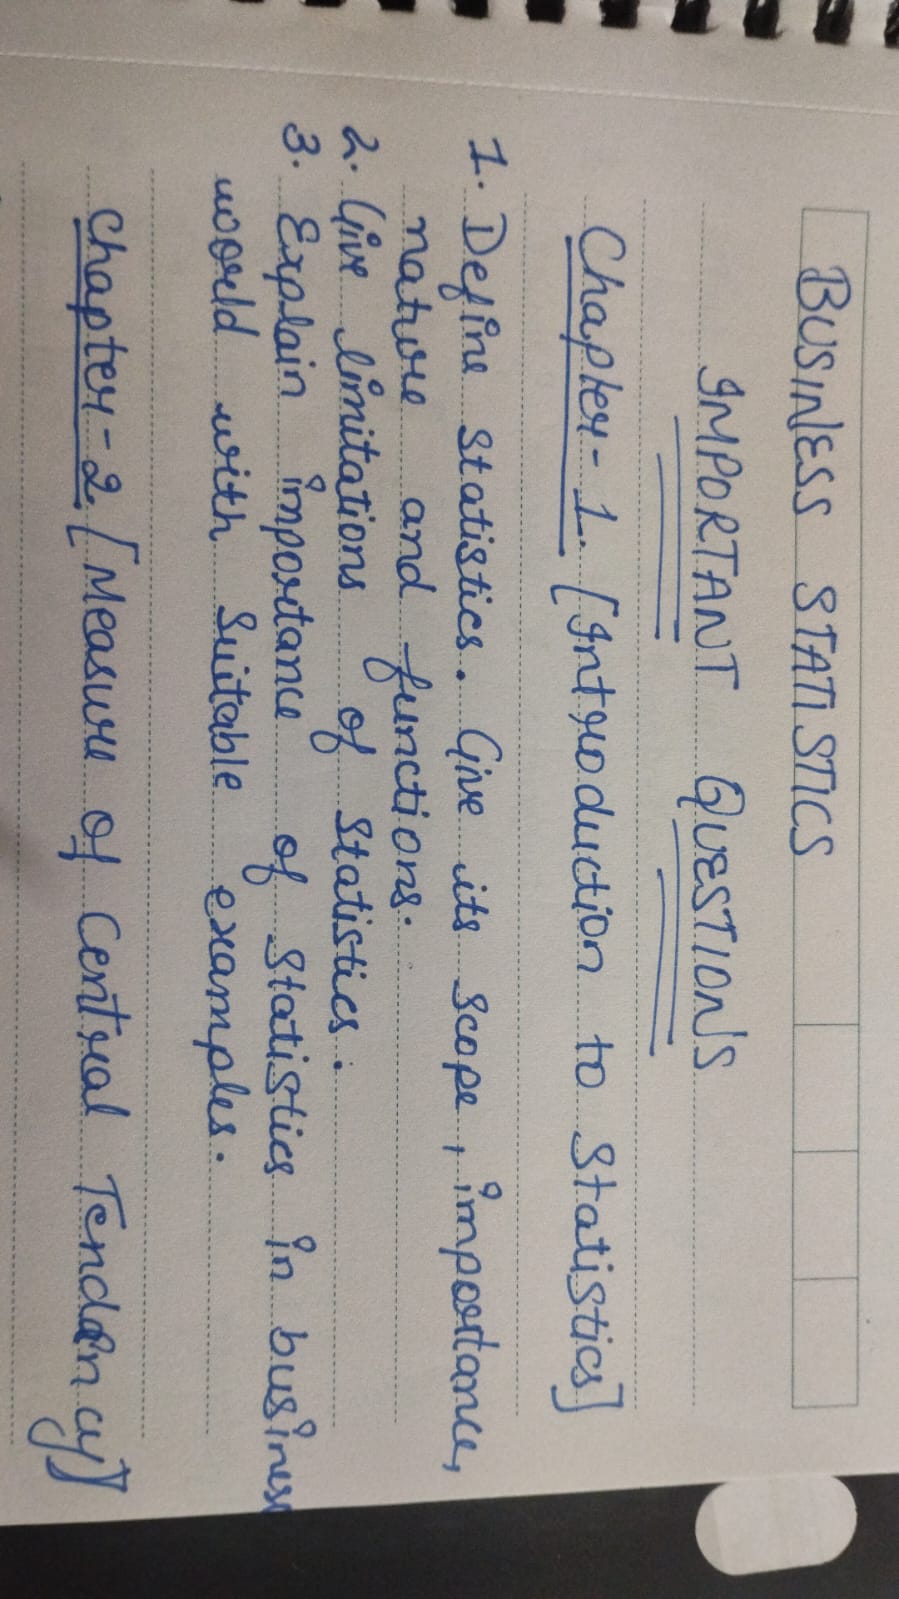 BUSINESS STATISTICS
IMPORTANT QUESTIONS
Chapter-1 [Introduction to Statistics]
1. Define Statistics. Give its scope, importance,
nature and functions.
2. Give limitations of Statistics.
3. Explain importance of Statistics in business
world with Suitable examples.
Chapter-2 [Measure of Central Tendency]